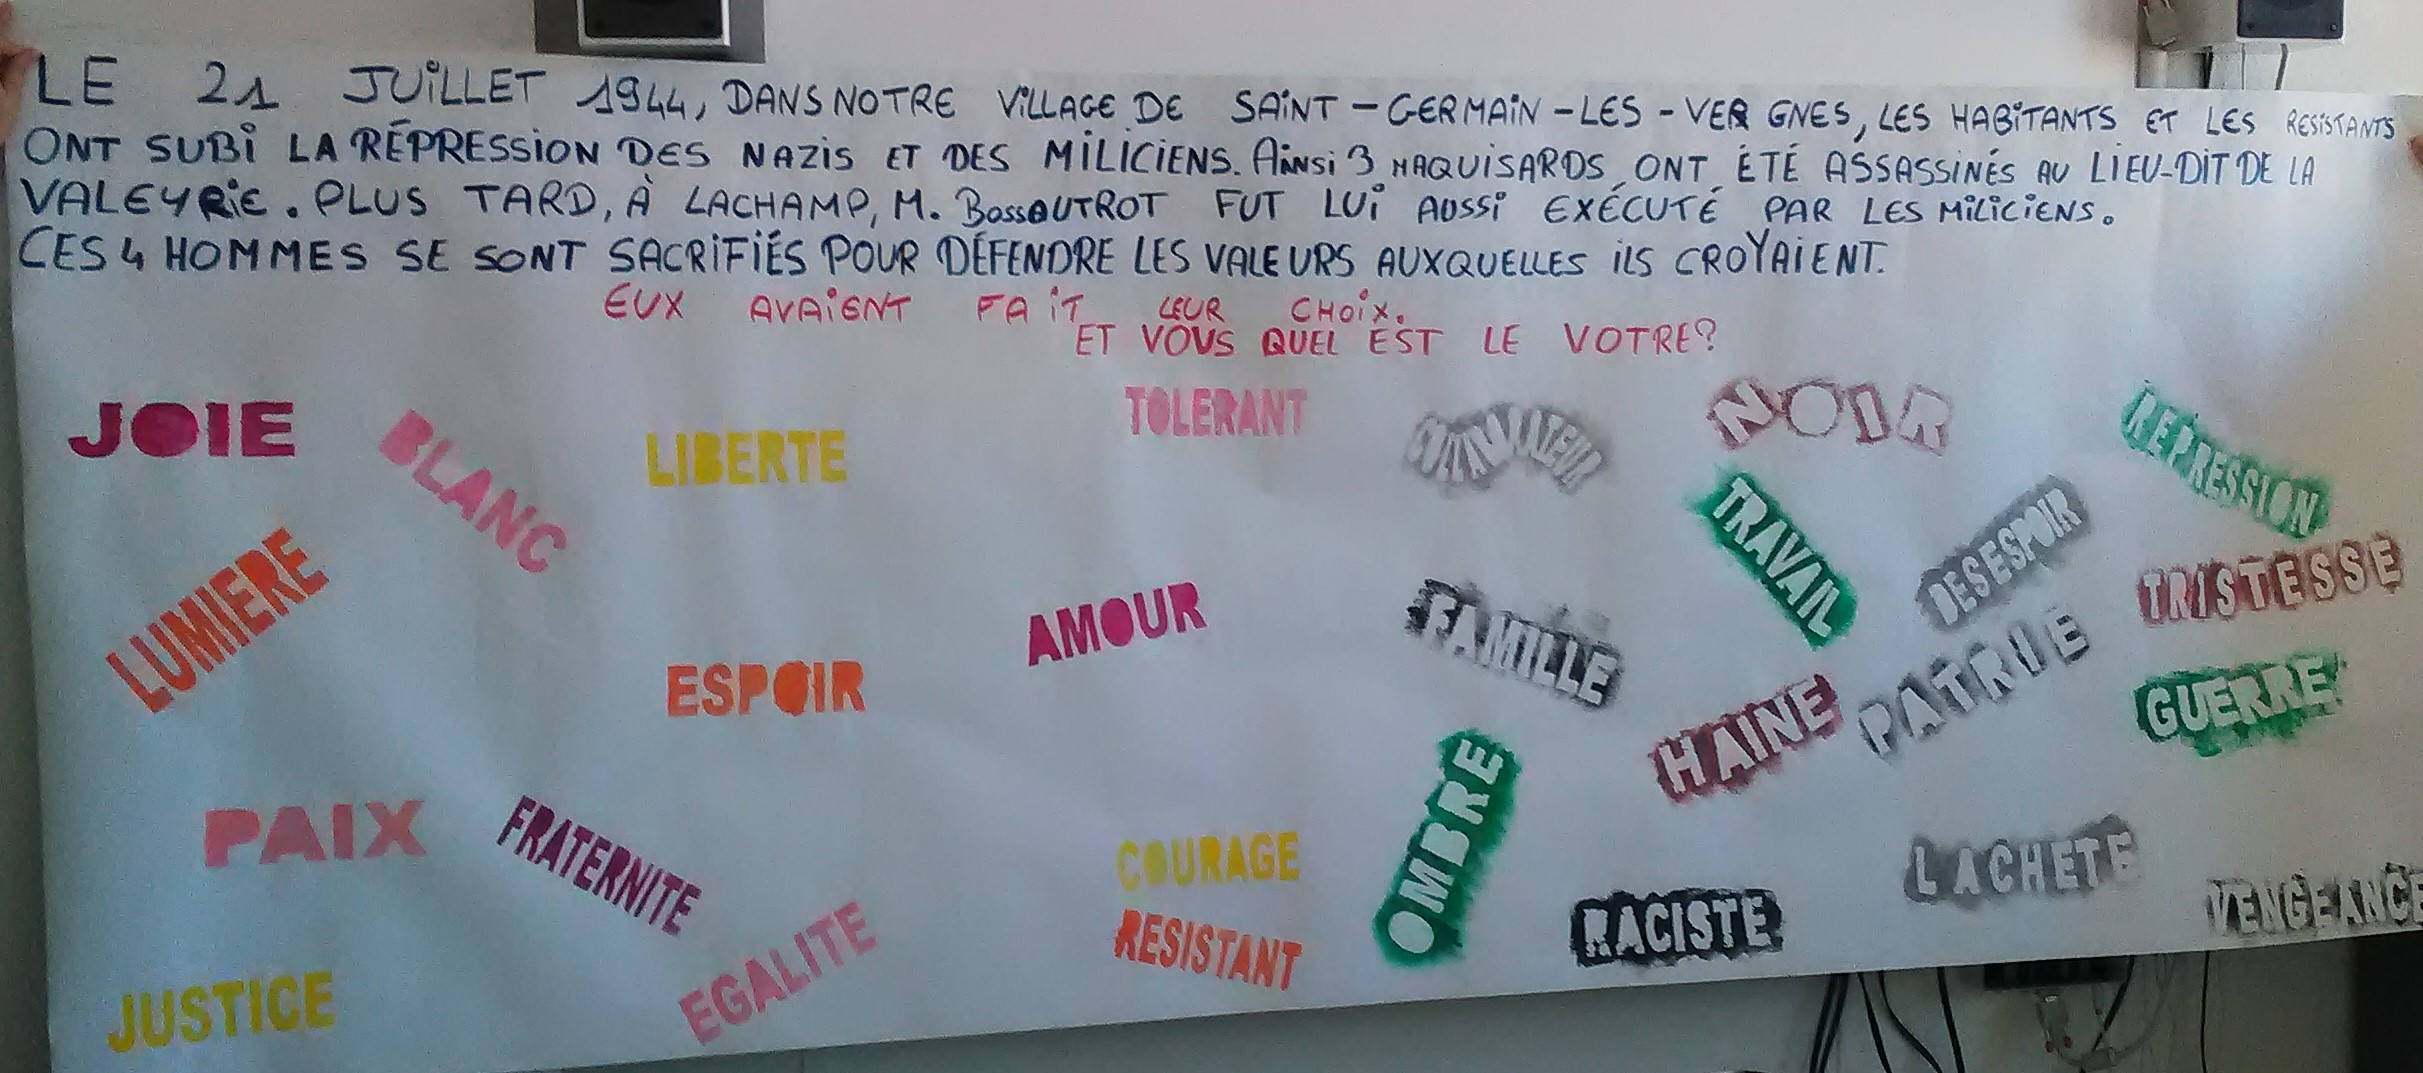 LE 21 JUILLET 1944, DANS NOTRE VILLAGE DE SAINT-GERMAIN-LES-VERGNES, LES HABITANTS ET LES RESISTANTS
ONT SUBI LA RÉPRESSION DES NAZIS ET DES MILICIENS. AINSI 3 MAQUISARDS ONT ÉTÉ ASSASSINÉS AU LIEU-DIT DE LA
VALEYRIE. PLUS TARD, À LACHAMP, M. BOSSOUTROT FUT LUI AUSSI EXÉCUTÉ PAR LES MILICIENS.
CES 4 HOMMES SE SONT SACRIFIÉS POUR DÉFENDRE LES VALEURS AUXQUELLES ILS CROYAIENT.
EUX AVAIENT FAIT LEUR CHOIX.
ET VOUS QUEL EST LE VOTRE?
JOIE
BLANC
LIBERTE
TOLERANT
COLLABORATEUR
NOIR
REPRESSION
LUMIERE
ESPOIR
AMOUR
FAMILLE
TRAVAIL
DESESPOIR
TRISTESSE
HAINE
PATRIE
GUERRE
PAIX
FRATERNITE
COURAGE
OMBRE
LACHETE
JUSTICE
EGALITE
RESISTANT
RACISTE
VENGEANCE